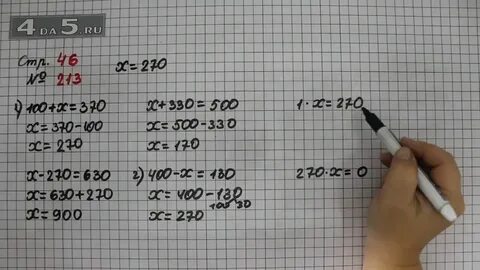 4DA5.RU
Стр. 46
№ 213
x = 270
1) 100 + x = 370
x = 370 - 100
x = 270
x - 270 = 630
x = 630 + 270
x = 900
x + 330 = 500
x = 500 - 330
x = 170
2) 400 - x = 130
x = 400 - 130
100 30
x = 270
1 · x = 270
270 · x = 0